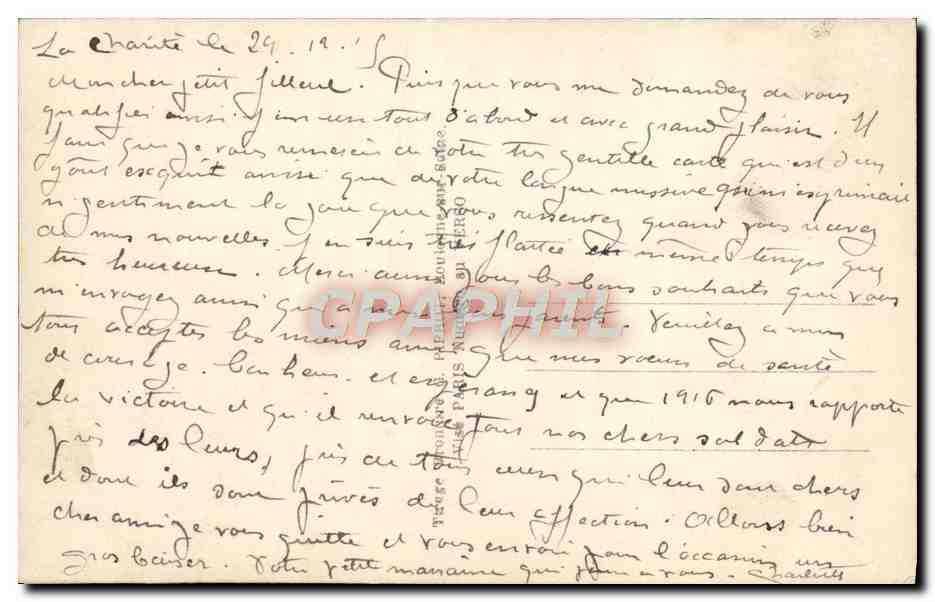 La Charité le 29.12.15
Mon cher petit filleul. Puisque vous me demandez de vous
qualifier ainsi j'en use tout d'abord et avec grand plaisir. Il
faut que je vous remercie de votre très gentille carte qui est d'un
goût exquit ainsi que de votre longue missive qui m'exprimait
si gentiment la joie que vous ressentez quand vous recevez
de mes nouvelles j'en suis très flattée en même temps que
très heureuse. Merci aussi pour les bons souhaits que vous
m'envoyez ainsi qu'à mes parents. Veuillez à mon
tour accepter les miens ainsi que mes vœux de santé
de courage. bonheur. et espérons et que 1916 nous rapporte
la victoire et qu'il renvoie tous nos chers soldats
près des leurs, près de tous ceux qui leur sont chers
et dont ils sont privés de leur affection. Allons bien
cher ami je vous quitte et vous envoie pour l'occasion un
gros baiser. Votre petite marraine qui pense à vous. Charlotte
Tirage PAPEGHIN, Boulogne-sur-Seine.
Visé PARIS Numéro au VERSO
CPAPHIL